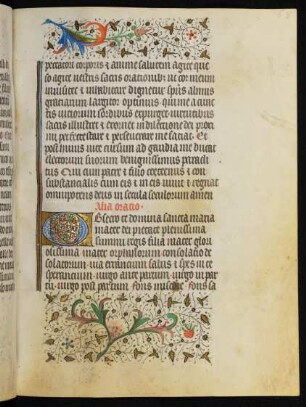 peccatori corporis et anime salutem Agite que
so agite vestris sacris orationibus ut cor meum
invisere et inhabitare dignetur sp̄us almus
gratiarum largitor optimus qui me a cunc
tis viciorum sordibus expurget virtutibus
sacris illustret et exornet in dilectione dei et proxi
mi perfecte stare et perseverare me faciat Et
post huius vite cursum ad gaudia me ducat
electorum suorum benignissimus paracli
tus Qui cum patre et filio coeternus et con
substantialis cum eis et in eis vivit et regnat
omnipotens deus in secula seculorum amen
Alia oratio
Obsecro te domina sancta maria
mater dei pietate plenissima
summi regis filia mater glori
osissima mater orphanorum consolatio de
solatorum via errancium salus et spes in te
sperancium virgo ante partum virgo in par
tu virgo post partum fons misericordie fons sa